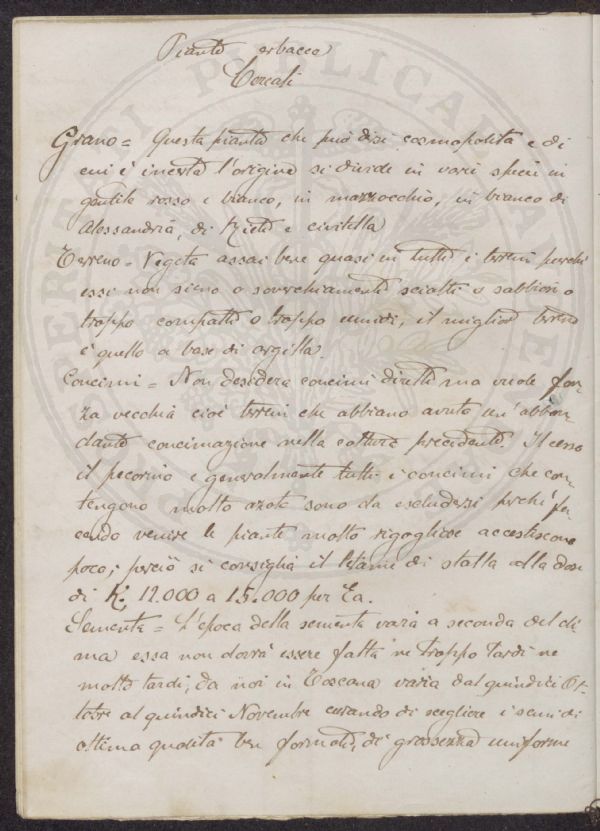 Piante erbacee
Cereali
Grano = Questa pianta che può dirsi cosmopolita e di
cui è incerta l'origine si divide in varii specii in
gentile rosso e bianco, in mazzocchio, in bianco di
Alessandria, di Rieti e civitella
Terreno = Vegeta assai bene quasi in tutti i terreni perchè
essi non sieno o soverchiamente sciolti o sabbiosi o
troppo compatti o troppo umidi, il miglior terreno
è quello a base di argilla.
Concimi = Non desidera concimi diretti ma vuole for-
za vecchia cioè terreni che abbiano avuto un'abbon-
dante concimazione nella coltura precedente. Il cesso
il pecorino e generalmente tutti i concimi che con-
tengono molto azoto sono da escludersi perchè fa-
cendo venire le piante molto rigogliose accestiscono
poco; perciò si consiglia il letame di stalla alla dose
di K. 12.000 a 15.000 per Ea.
Sementa = L'epoca della sementa varia a seconda del cli-
ma essa non dovrà essere fatta ne troppo tardi ne
molto tardi, da noi in Toscana varia dal quindici Ot-
tobre al quindici Novembre curando di scegliere i semi di
ottima qualità ben formati, di grossezza uniforme
PUPERIBUS PUBLICAE